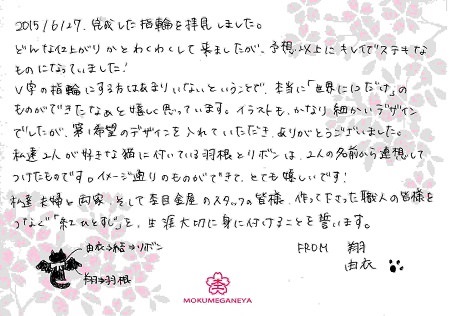 2015/6/27、完成した指輪を拝見しました。
どんな仕上がりかとわくわくして来ましたが、予想以上にキレイでステキな
ものになっていました！
V字の指輪にする方はあまりいないということで、本当に「世界に1つだけ」の
ものができたなぁと嬉しく思っています。イラストも、かなり細かいデザイン
でしたが、第1希望のデザインを入れていただき、ありがとうございました。
私達2人が好きな猫に付いている羽根とリボンは、2人の名前から連想して
つけたものです。イメージ通りのものができて、とても嬉しいです！
私達夫婦と両家、そして杢目金屋のスタッフの皆様、作って下さった職人の皆様を
つなぐ「紅ひとすじ」を、生涯大切に身に付けることを誓います。
由衣→結→リボン
翔→羽根
FROM 翔
由衣
MOKUMEGANEYA